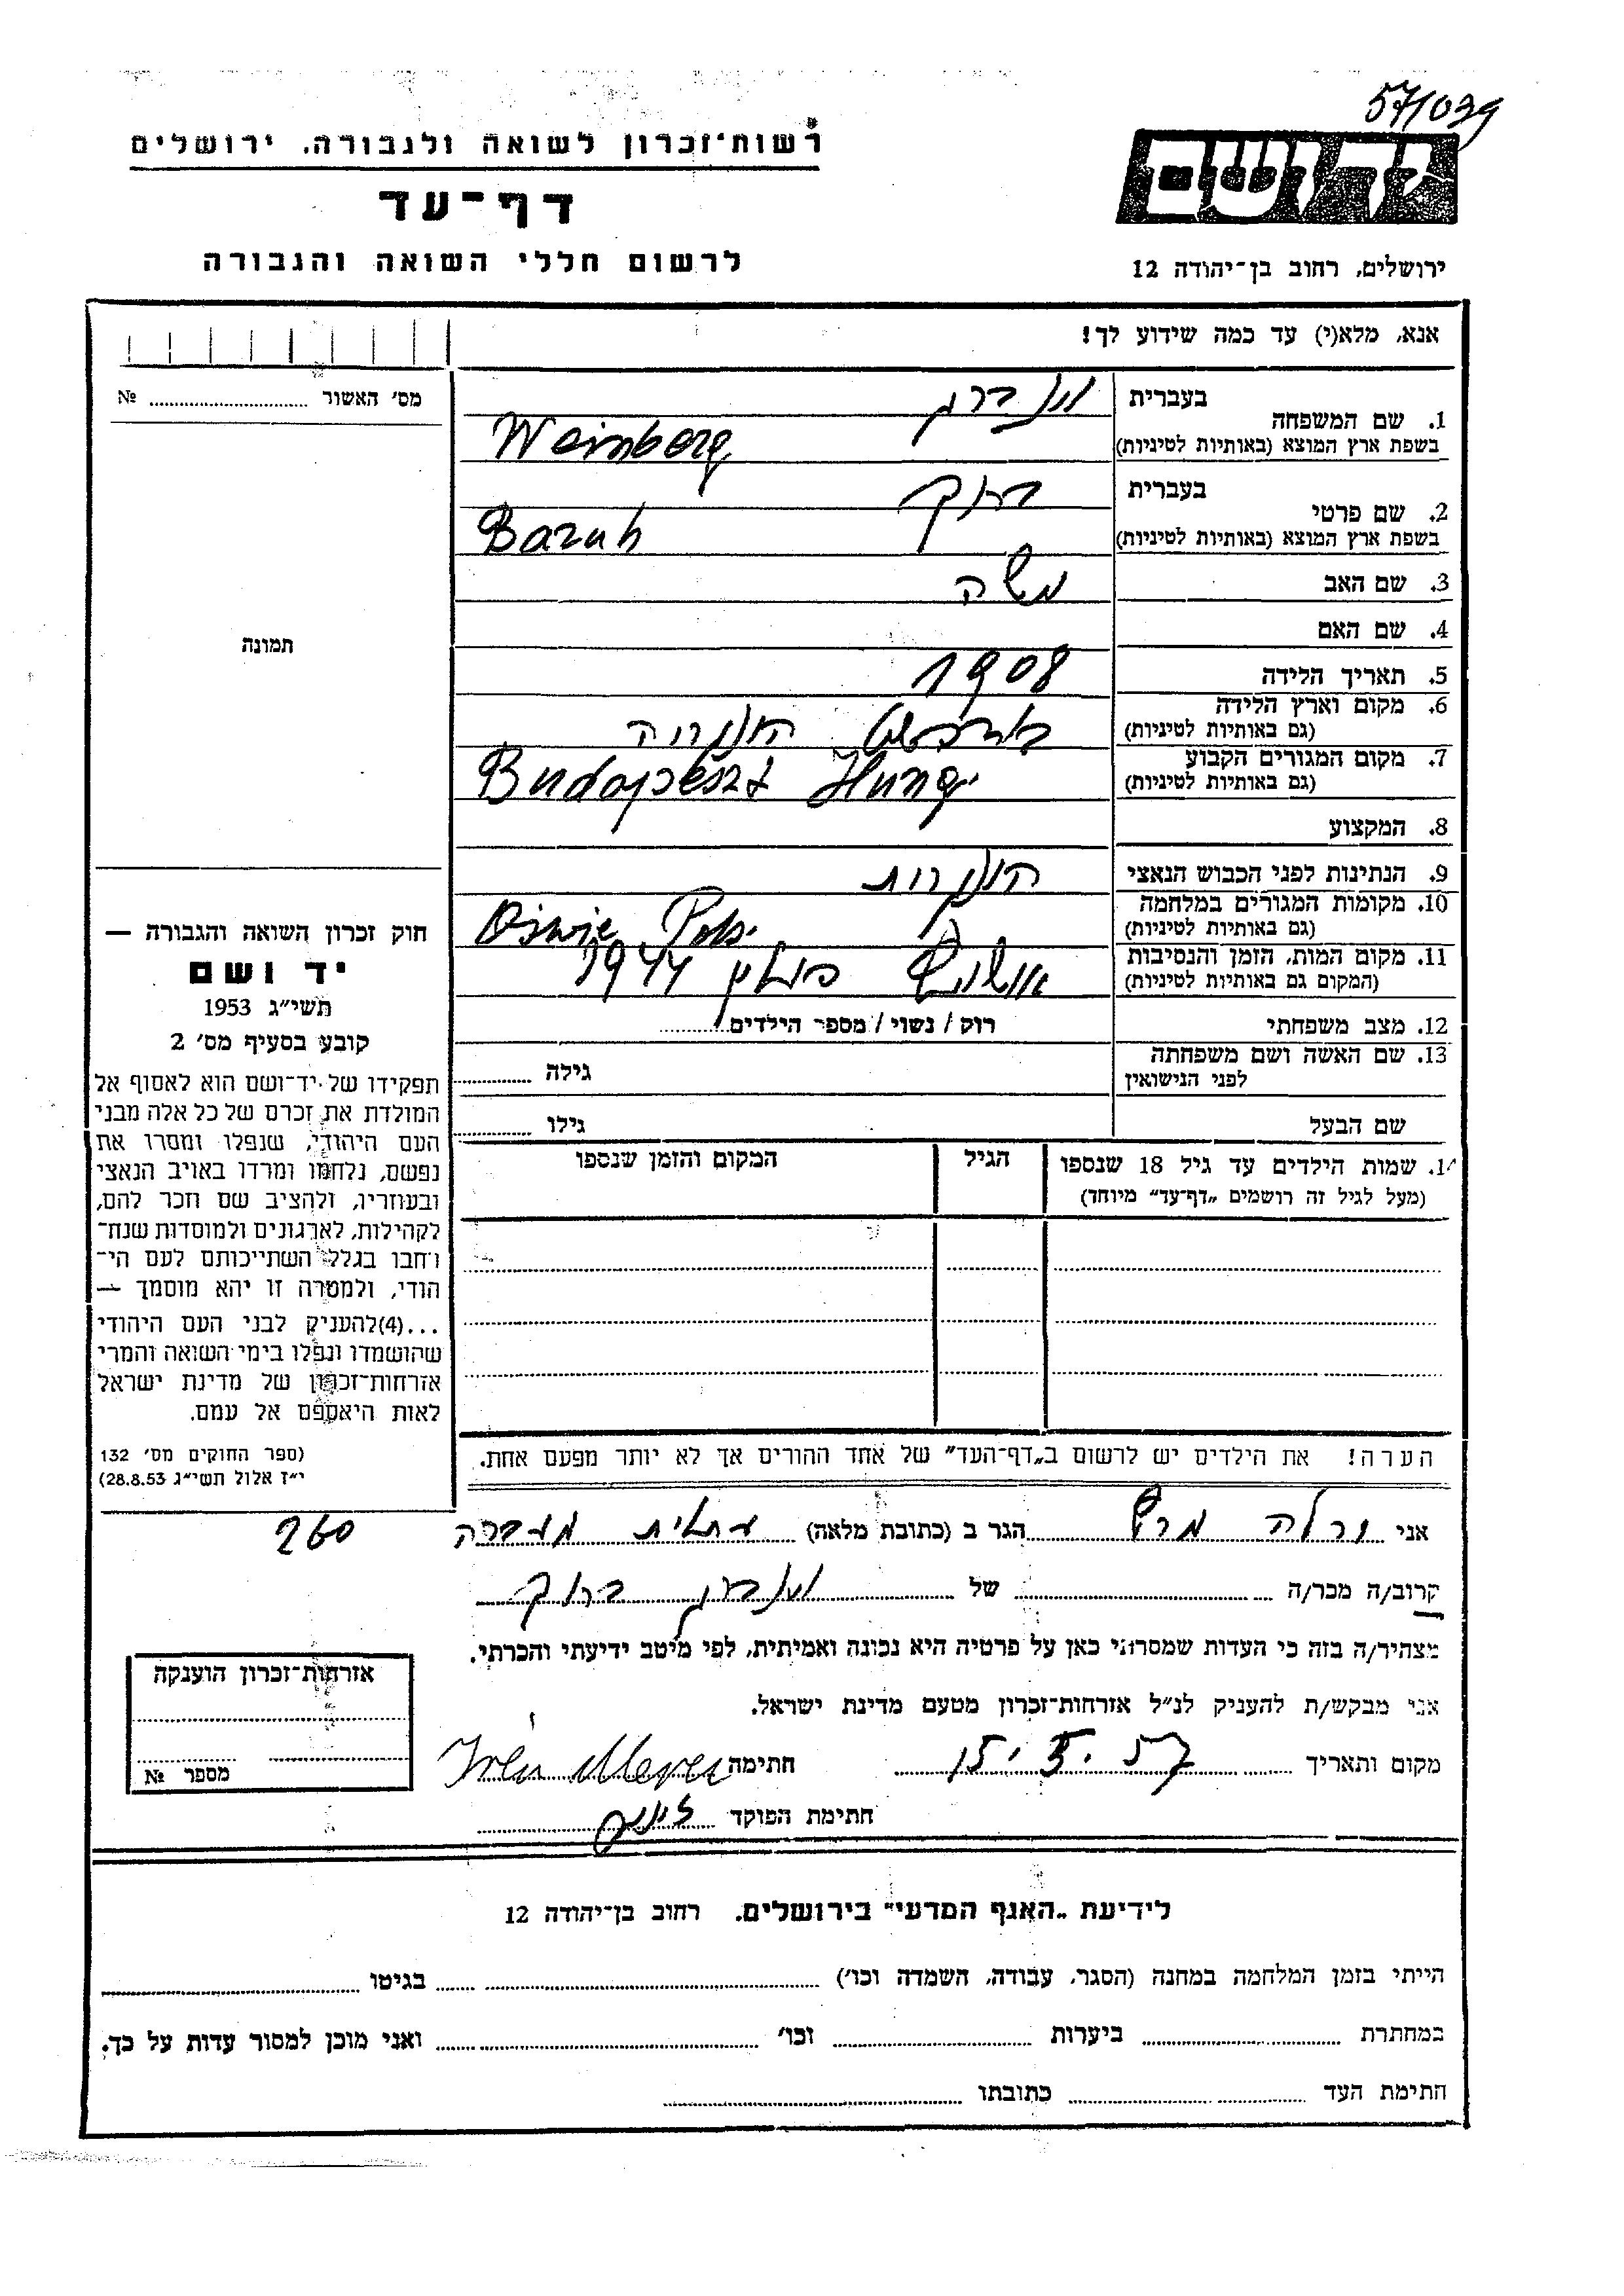 57/039
רשות־זכרון לשואה ולגבורה. ירושלים
יד ושם
דף־עד
לרשום חללי השואה והגבורה
ירושלים, רחוב בן־יהודה 12
אנא, מלא(י) עד כמה שידוע לך!
מס׳ האשור ........ №
בעברית
1. שם המשפחה
בשפת ארץ המוצא (באותיות לטיניות)
Weinberg
בעברית ברוך
2. שם פרטי
בשפת ארץ המוצא (באותיות לטיניות)
Baruh
3. שם האב משה
4. שם האם
תמונה
5. תאריך הלידה 1908
6. מקום וארץ הלידה
(גם באותיות לטיניות)
בודפשט הונגריה
7. מקום המגורים הקבוע
(גם באותיות לטיניות)
Budapeszt
8. המקצוע
9. הנתינות לפני הכבוש הנאצי
10. מקומות המגורים במלחמה
(גם באותיות לטיניות)
11. מקום המות, הזמן והנסיבות
(המקום גם באותיות לטיניות)
פולין 1944
12. מצב משפחתי רוק / נשוי / מספר הילדים
13. שם האשה ושם משפחתה
לפני הנישואין
גילה
שם הבעל גילו
14. שמות הילדים עד גיל 18 שנספו
(מעל לגיל זה רושמים „דף־עד״ מיוחד)
הגיל
המקום והזמן שנספו
חוק זכרון השואה והגבורה —
יד ושם
תשי״ג 1953
קובע בסעיף מס׳ 2
תפקידו של יד־ושם הוא לאסוף אל
המולדת את זכרם של כל אלה מבני
העם היהודי, שנפלו ומסרו את
נפשם, נלחמו ומרדו באויב הנאצי
ובעוזריו, ולהציב שם וזכר להם,
לקהילות, לארגונים ולמוסדות שנח־
רחבו בגלל השתייכותם לעם הי־
הודי, ולמטרה זו יהא מוסמך —
...(4)להעניק לבני העם היהודי
שהושמדו ונפלו בימי השואה והמרי
אזרחות־זכרון של מדינת ישראל
לאות היאספם אל עמם.
(ספר החוקים מס׳ 132
י״ז אלול תשי״ג 28.8.53)
הערה! את הילדים יש לרשום ב„דף־העד״ של אחד ההורים אך לא יותר מפעם אחת.
אני הגר ב (כתובת מלאה) עתלית מעברה 260
קרוב/ה מכר/ה של ברוך
מצהיר/ה בזה כי העדות שמסרתי כאן על פרטיה היא נכונה ואמיתית, לפי מיטב ידיעתי והכרתי.
אני מבקש/ת להעניק לנ״ל אזרחות־זכרון מטעם מדינת ישראל.
מקום ותאריך חתימה
חתימת הפוקד
אזרחות־זכרון הוענקה
מספר №
לידיעת „האגף המדעי״ בירושלים. רחוב בן־יהודה 12
הייתי בזמן המלחמה במחנה (הסגר, עבודה, השמדה וכו׳) בגיטו
במחתרת ביערות וכו׳ ואני מוכן למסור עדות על כך.
חתימת העד כתובתו